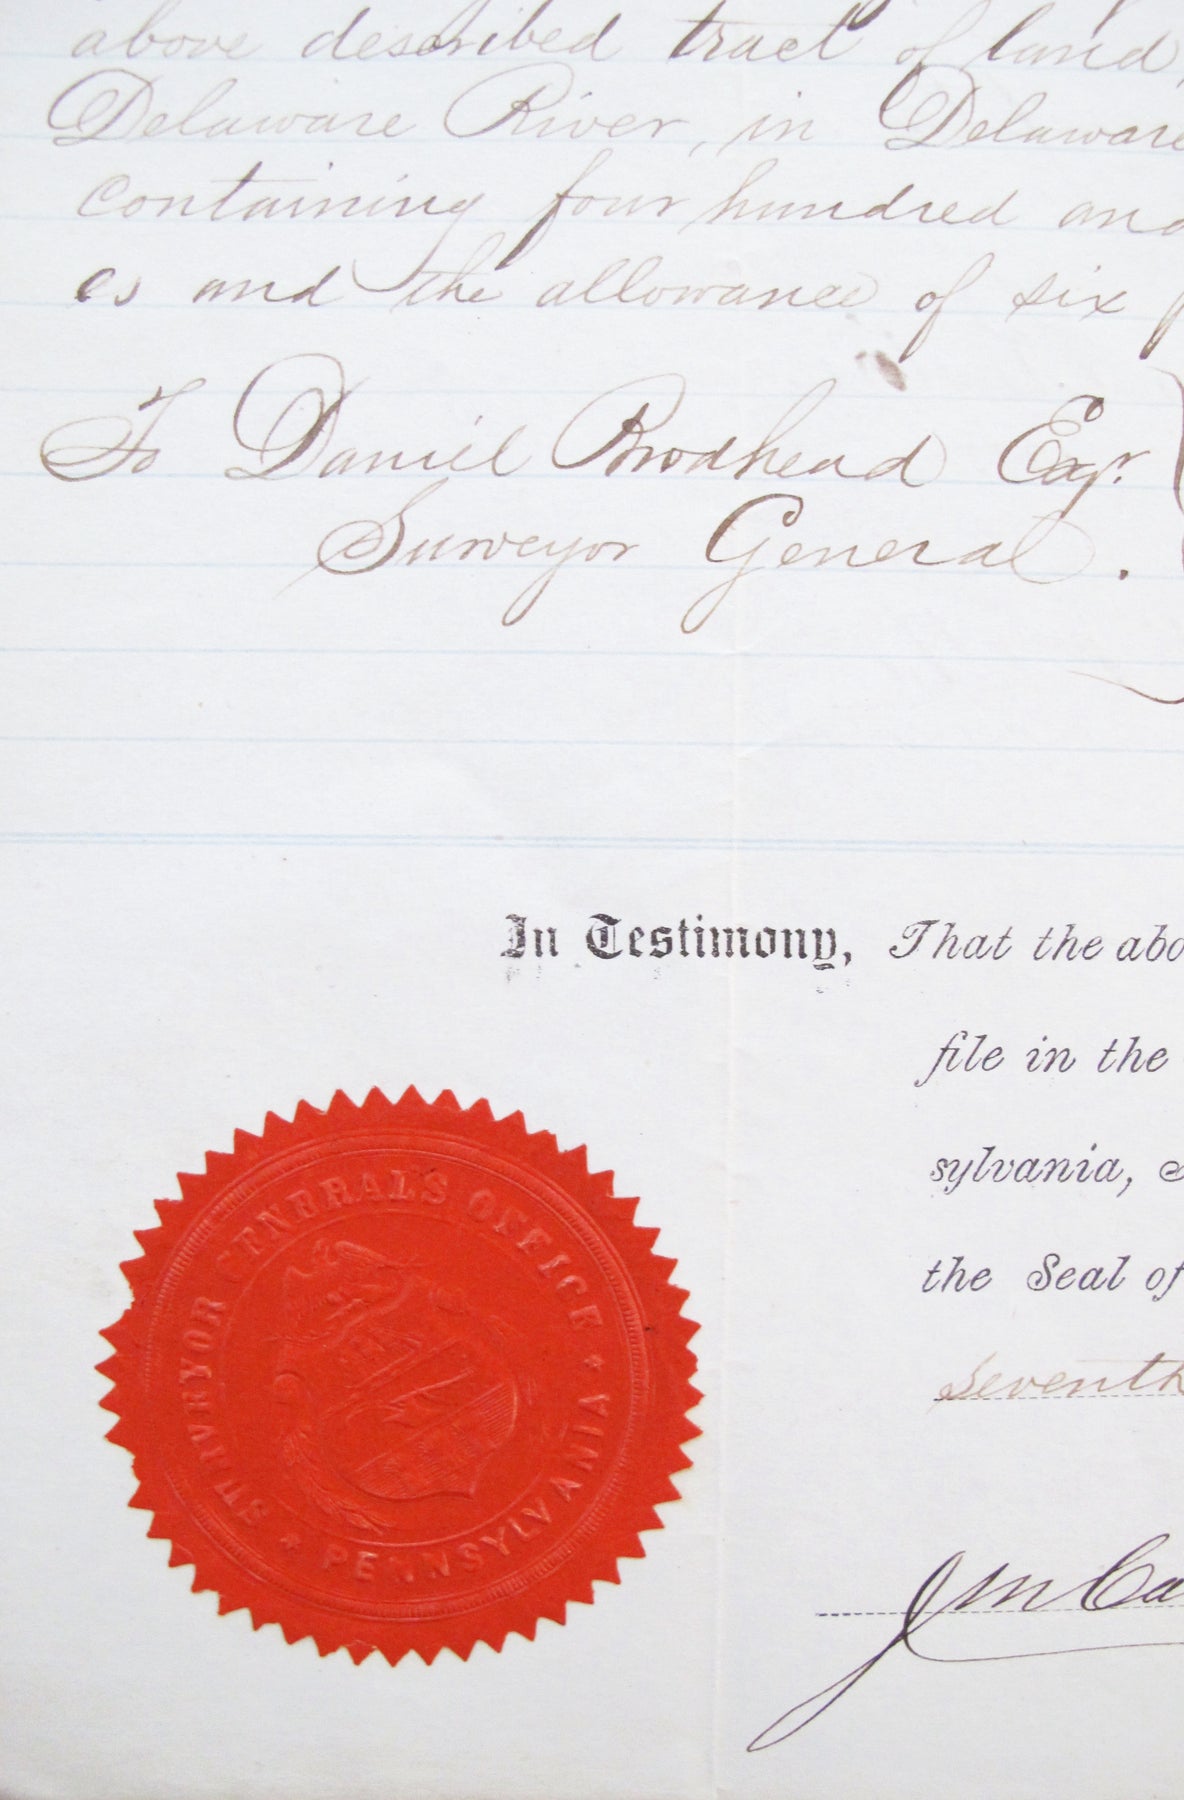 above described tract of land,
Delaware River, in Delaware
containing four hundred and
es and the allowance of six
To Daniel Brodhead Esqr.
Surveyor General.
In Testimony, That the abo
file in the
sylvania,
the Seal of
Seventh
SURVEYOR GENERAL'S OFFICE
PENNSYLVANIA
J M Ca